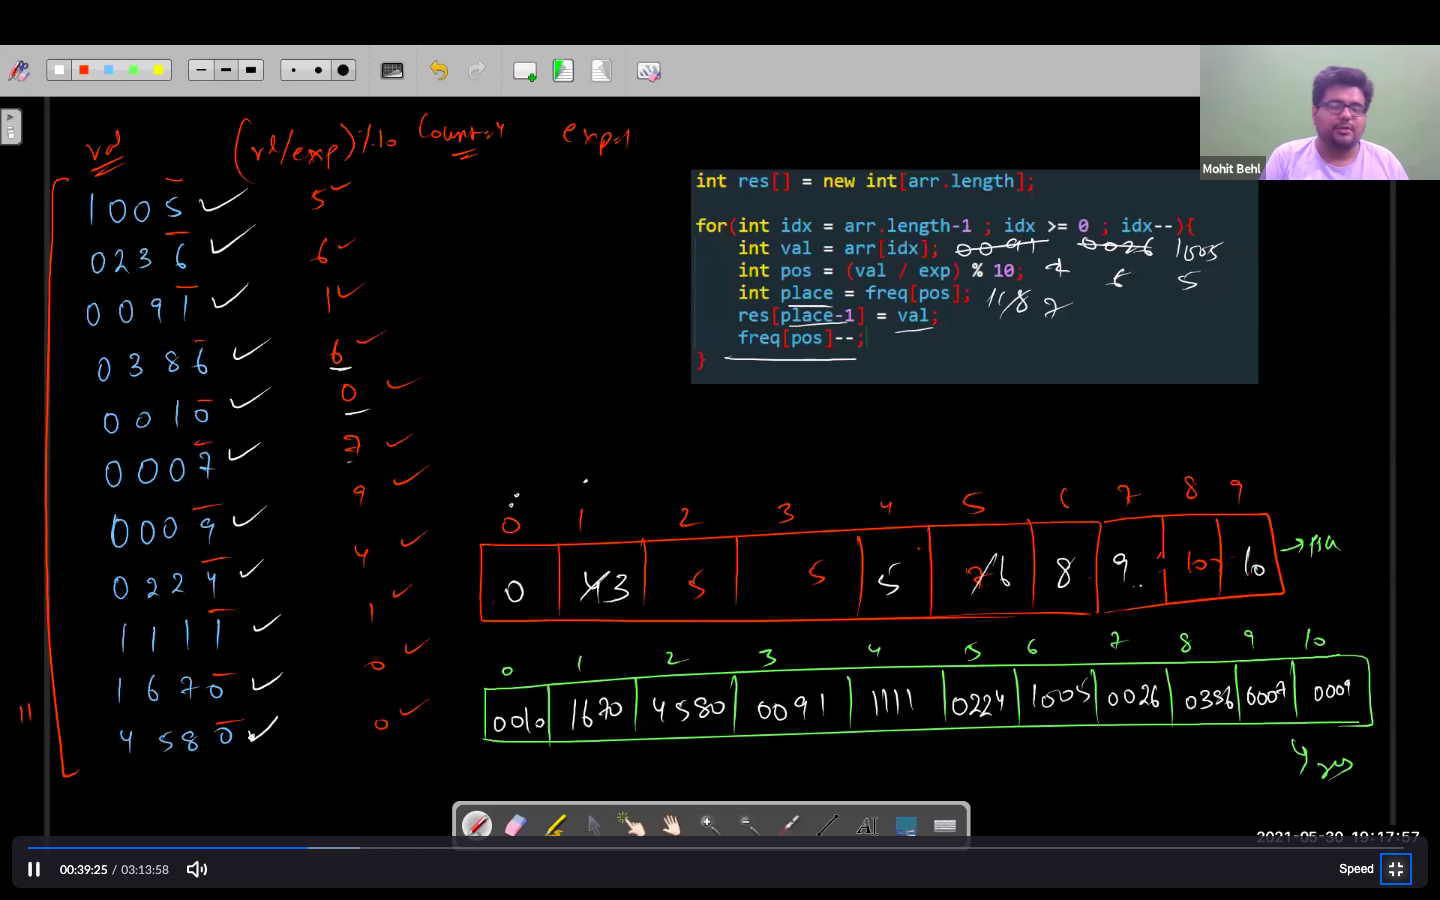 val (val/exp)%10 Count=4 exp=1
1005 5
0236 6
0091 1
0386 6
0010 0
0007 7
0009 9
0224 4
1111 1
1670 0
4580 0
11
Mohit Behl
int res[] = new int[arr.length];
for(int idx = arr.length-1 ; idx >= 0 ; idx--){
int val = arr[idx]; 0091 0026 1005
int pos = (val / exp) % 10; 6 5
int place = freq[pos]; 7
res[place-1] = val;
freq[pos]--;
}
0 1 2 3 4 5 6 7 8 9
0 3 5 5 5 6 8 9 10 10
0 1 2 3 4 5 6 7 8 9 10
0010 1670 4580 0091 1111 0224 1005 0026 0386 0007 0009
AI
2021-05-30 19:17:57
00:39:25 / 03:13:58 Speed